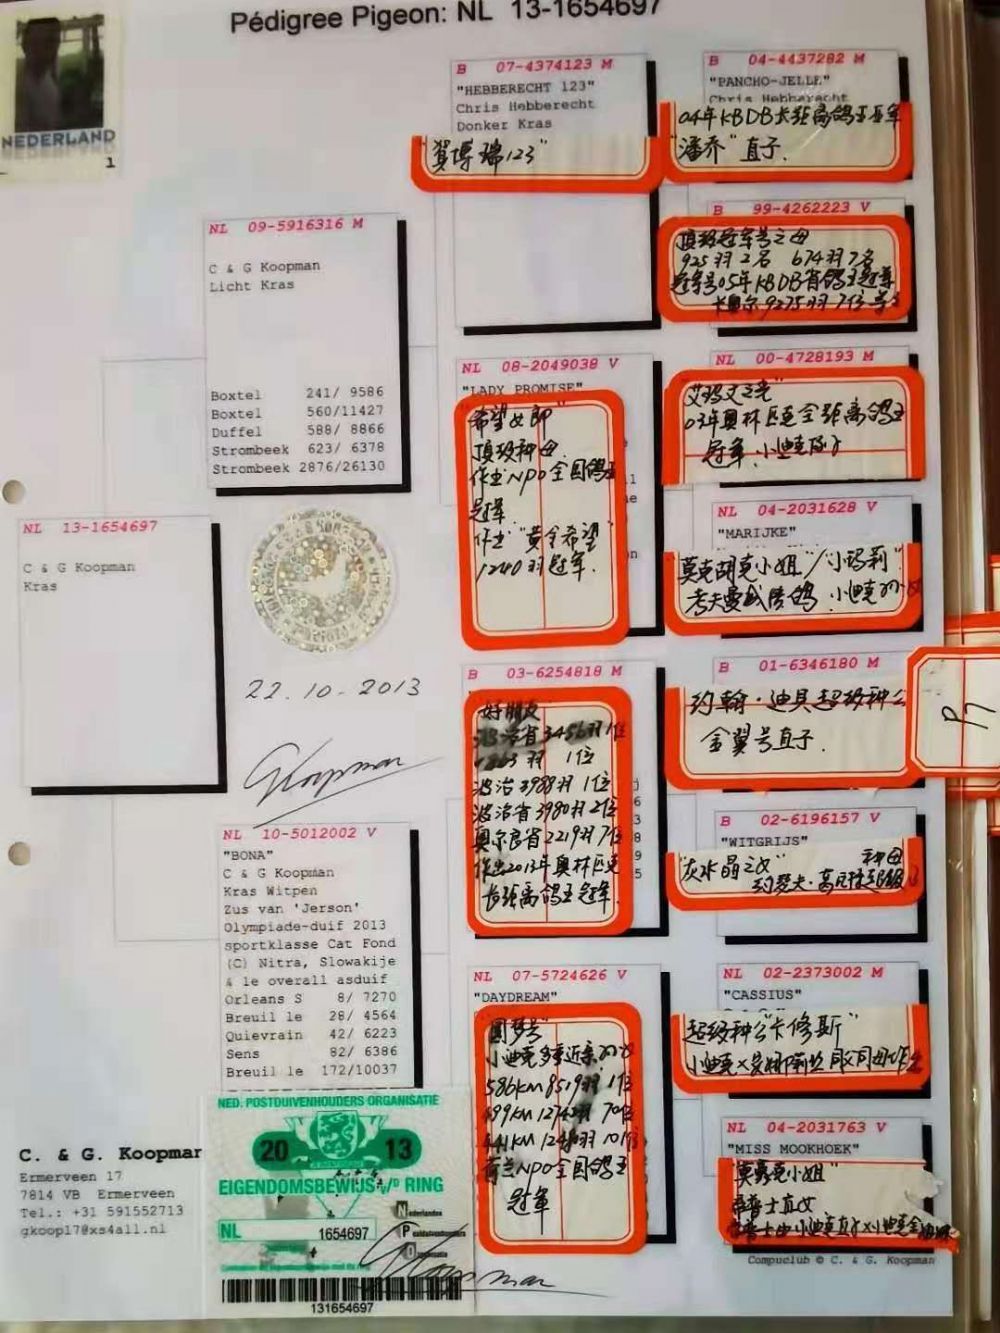 Pédigree Pigeon: NL 13-1654697
NEDERLAND
1
NL 13-1654697
C & G Koopman
Kras
NL 09-5916316 M
C & G Koopman
Licht Kras
Boxtel 241/ 9586
Boxtel 560/11427
Duffel 588/ 8866
Strombeek 623/ 6378
Strombeek 2876/26130
22.10-2013
GKoopman
NL 10-5012002 V
"BONA"
C & G Koopman
Kras Witpen
Zus van 'Jerson'
Olympiade-duif 2013
sportklasse Cat Fond
(C) Nitra, Slowakije
& 1e overall asduif
Orleans S 8/ 7270
Breuil le 28/ 4564
Quievrain 42/ 6223
Sens 82/ 6386
Breuil le 172/10037
B 07-4374123 M
"HEBBERECHT 123"
Chris Hebberecht
Donker Kras
"贺博瑞123"
NL 08-2049038 V
"LADY PROMISE"
希望女郎
顶级种母
作出NPO全国鸽王
冠军.
作出"黄金希望"
1240羽冠军.
B 03-6254818 M
好朋友
1位
羽 1位
波治3988羽1位
波治省3980羽2位
奥尔良省2219羽7位
作出2013年奥林匹克
长距离鸽王冠军.
NL 07-5724626 V
"DAYDREAM"
圆梦号
小迪克多重近亲
586KM 8519羽 1位
羽 70位
羽 10位
荷兰NPO全国鸽王
冠军
B 04-4437282 M
"PANCHO-JELLE"
Chris Hebberecht
04年KBDB长距离鸽王亚军
"潘乔"直子.
B 99-4262223 V
顶级冠军号之母
925羽2名 674羽7名
冠军号05年KBDB省鸽王冠军
9275羽7位
NL 00-4728193 M
03年奥林匹克全距离鸽王
冠军.小迪克
NL 04-2031628 V
"MARIJKE"
莫克胡克小姐"/"小玛莉"
考夫曼 小迪克
B 01-6346180 M
约翰·迪具超级种公
金翼号直子.
B 02-6196157 V
"WITGRIJS"
"灰水晶之女" 种母
约瑟夫·
NL 02-2373002 M
"CASSIUS"
超级种公"卡修斯"
小迪克X 同父同母作出
NL 04-2031763 V
"MISS MOOKHOEK"
小姐"
直女
小迪克直子X小迪克
C. & G. Koopman
Ermerveen 17
7814 VB Ermerveen
Tel.: +31 591552713
gkoop17@xs4all.nl
NED. POSTDUIVENHOUDERS ORGANISATIE
20 13
EIGENDOMSBEWIJS V/D RING
NL 1654697
Nederlandse
Postduivenhouders
Organisatie
131654697
Compuclub © C. & G. Koopman